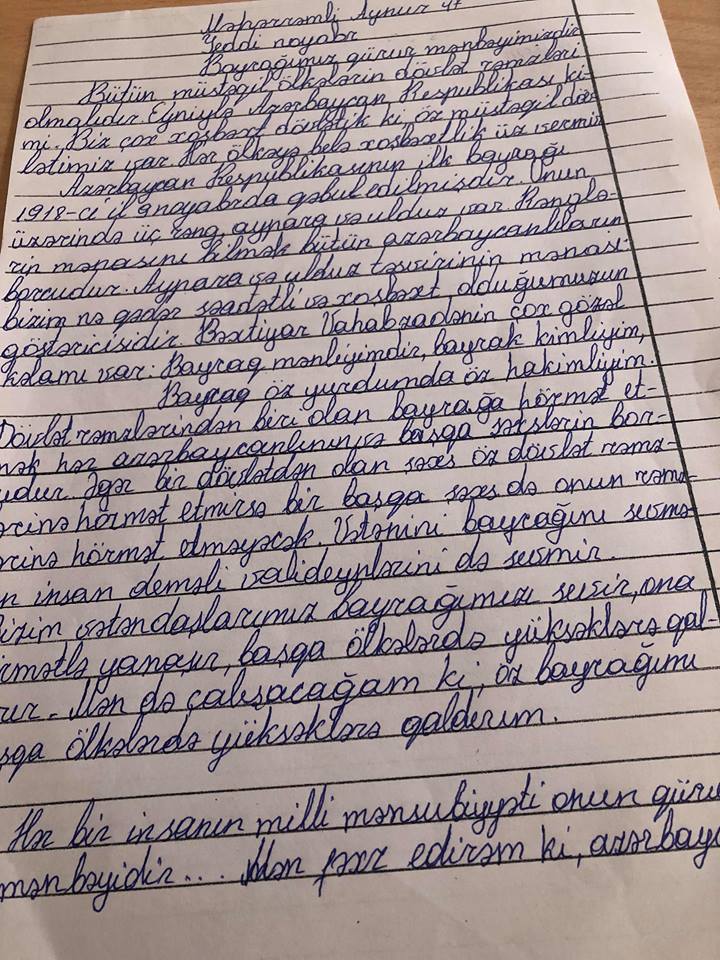 Məhərrəmli Aynur
Yeddi noyabr
Bayrağımız gürur mənbəyimizdir
Bütün müstəgil ölkələrin dövlət rəmzləri
olmalıdır. Eyniylə Azərbaycan Respublikası ki-
mi. Biz çox xoşbəxt dövlətik ki, öz müstəgil döv-
lətimiz var. Hər ölkəyə belə xoşbəxtlik üz vermir.
Azərbaycan Respublikasının ilk bayrağı
1918-ci il 9 noyabrda qəbul edilmişdir. Onun
üzərində üç rəng, aypara və ulduz var. Rənglə-
rin mənasını bilmək bütün azərbaycanlıların
borcudur. Aypara və ulduz təsvirinin mənası-
bizim nə qədər səadətli və xoşbəxt olduğumuzun
göstəricisidir. Bəxtiyar Vahabzadənin çox gözəl
kəlamı var: Bayraq mənliyimdir, bayrak kimliyim,
Bayraq öz yurdumda öz hakimliyim.
Dövlət rəmzlərindən biri olan bayrağa hörmət et-
mək hər azərbaycanlının və başqa şəxslərin bor-
udur. Əgər bir dövlətdən olan şəxs öz dövlət rəmz-
ərinə hörmət etmirsə bir başqa şəxs də onun rəmz-
ərinə hörmət etməyəcək. Vətənini bayrağını sevmə-
n insan deməli valideynlərini də sevmir.
izim vətəndaşlarımız bayrağımızı sevir, ona
rmətlə yanaşır, başqa ölkələrdə yüksəklərə qal-
rır. Mən də çalışacağam ki, öz bayrağımı
şqa ölkələrdə yüksəklərə qaldırım.
Hər bir insanın milli mənsubiyyəti onun gürur
mənbəyidir... Mən fəxr edirəm ki, azərbayc